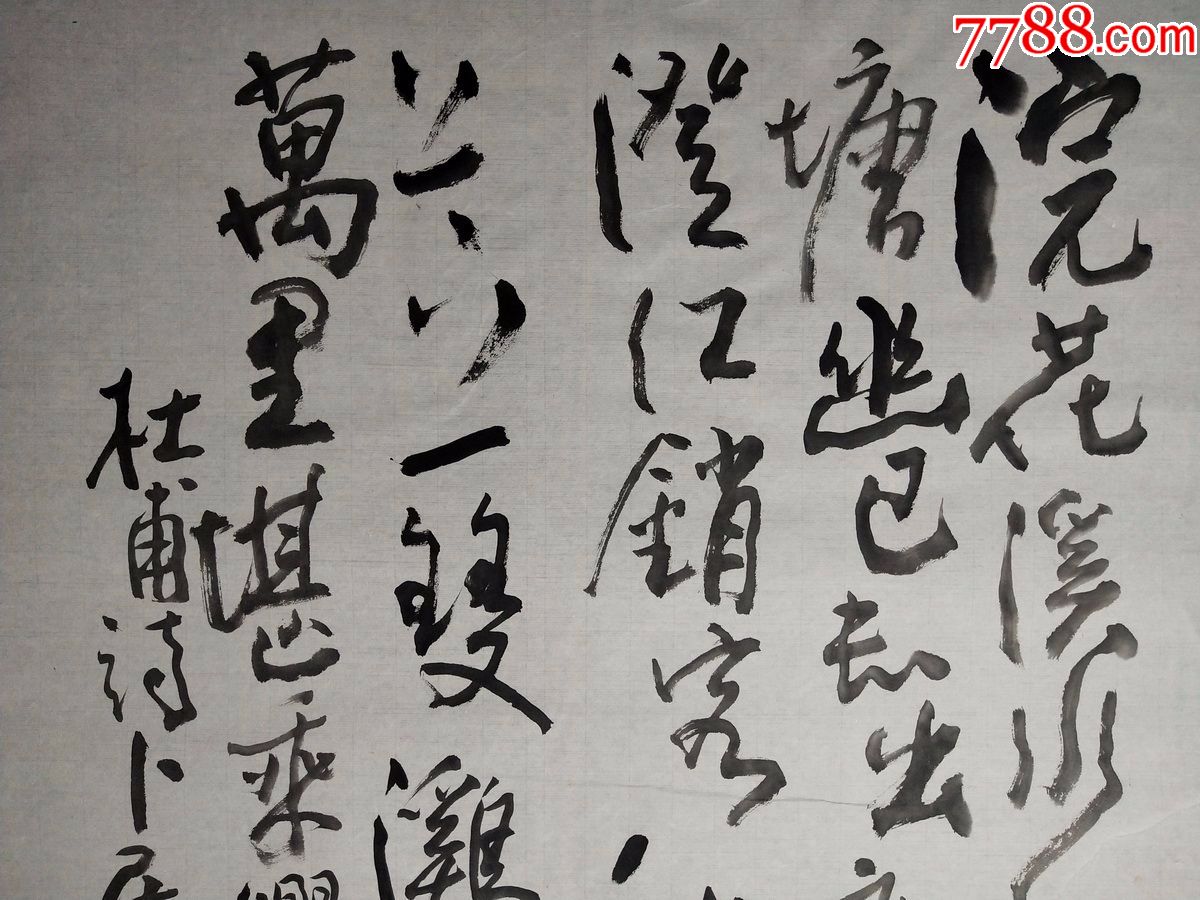 7788.com
浣花溪水
塘幽已知出
澄江銷客
一雙
萬里堪乘
杜甫詩卜居